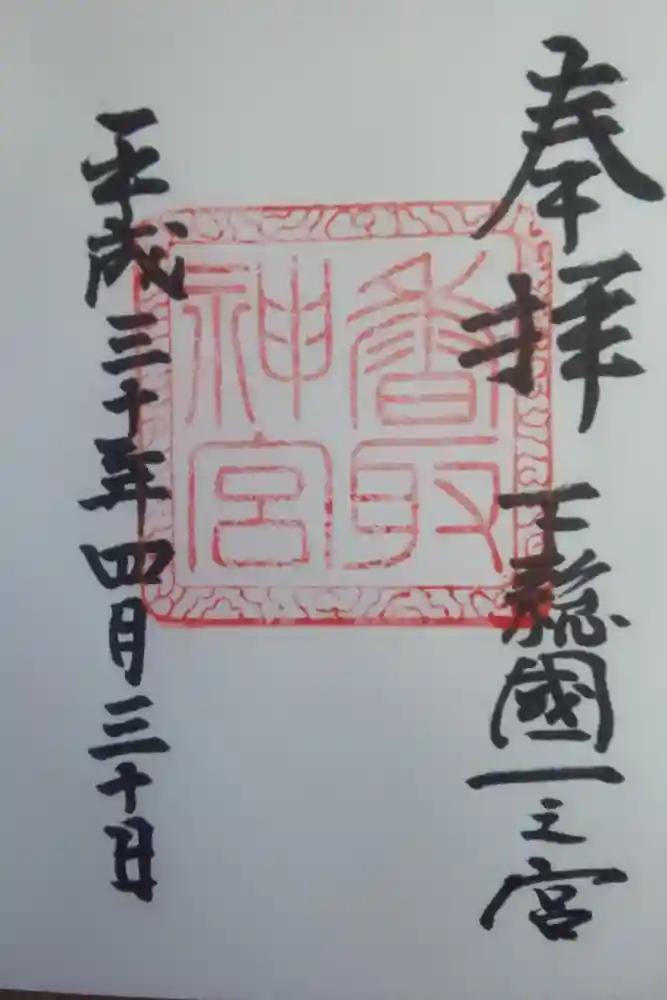 奉拝 下総國一之宮
香取
神宮
平成三十年四月三十日